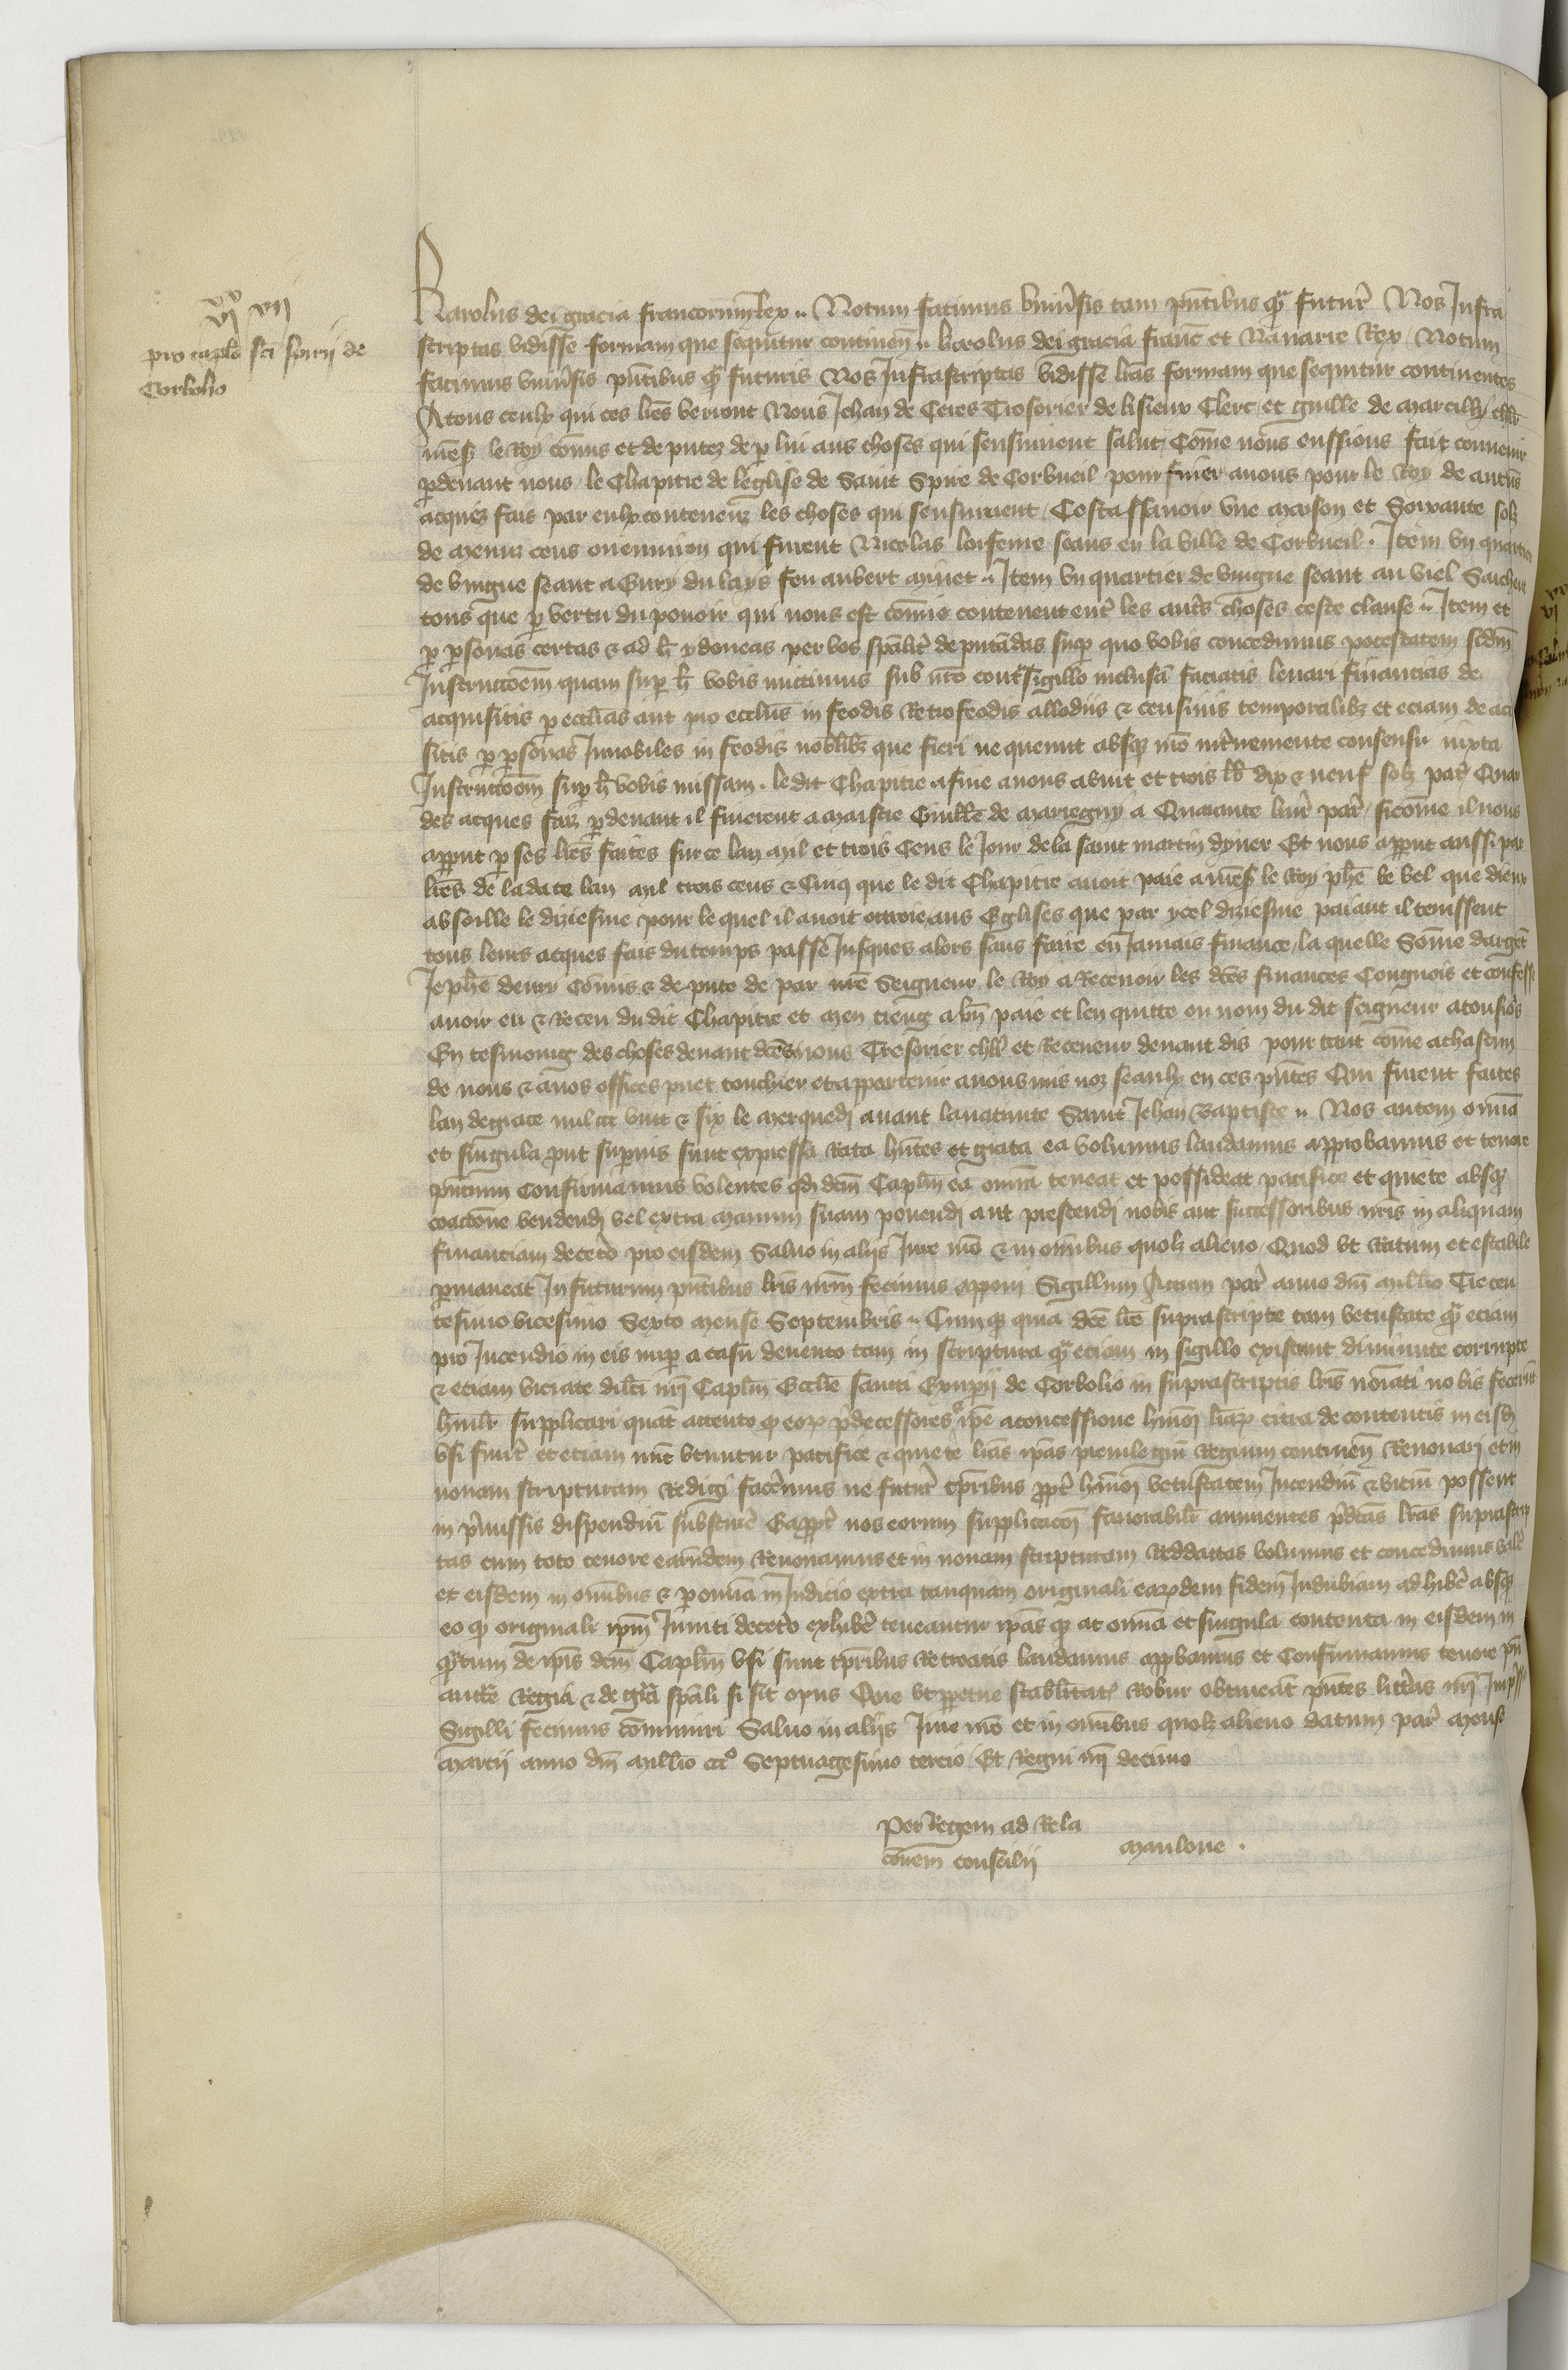 vjxx vij
pro caplo sci spirij de
Corbolio
Karolus dei gracia francorum Rex .. Notum facimus vniusis tam pntibus q̃ futur Nos Infra
scriptas vidisse formam que sequitur continen .. karolus dei gracia franc et Nauarre Rex Notum
facimus vniusis pntibus q̃ futuris Nos Infrascriptas vidisse lras formam que sequitur continentes
A tous ceulx qui ces lres verront Nous Jehan de Ceres Tresorier de lisieux Clerc et guille de marcilly chlr
mess le Roy comis et deputez de p lui aus choses qui sensuiuent salut Come nous eussions fait conuenir
pdeuant nous le Chapitre de leglise de Saint Spire de Corbueil pour finer a nous pour le Roy de aucuns
acquez fais par eulx contenenz les choses qui sensuiuent Cest assauoir vne maison et Soixante solz
de menuz cens ou enuiron qui furent Nicolas seans en la ville de Corbueil . Item vn quartier
de vingne seant a Eury du lays feu aubert .. Item vn quartier de vingne seant au viel
tous que p vertu du pouoir qui nous est comis contenent entr les autrs choses ceste clause .. Item et
p psonas certas & ad h ydoneas per vos spalit deputadas sup quo vobis concedimus potestatem scdm
Instructoem quam sup h vobis mittimus sub nro contsigillo inclusa faciatis leuari financias de
acquisitis p ecclias aut pro eccliis in feodis Retrofeodis allodijs & censiuis temporalibz et eciam de acq
sitis p psonas Innobiles in feodis nobilibz que fieri nequeunt absqz nro interuemente consensu iuxta
Instructoem sup h vobis missam . le dit Chapitre a fine a nous a vint et trois lb dix & neuf solz par Quar
des acques faiz pdeuant il finerent a maistre Guille de a Quarante liur par sicome il nous
apput p ses lres faites sur ce lan mil et trois Cens le Jour de la saint martin dyuer Et nous apput aussi par
lres de la date lan mil trois cens & Cinq que le dit Chapitre auoit paie a mess le Roy phe le bel que dieux
absoille le diziesme pour le quel il auoit ottroie aus Eglises que par ycel diziesme paiant il tenissent
tous leurs acques fais du temps passe Jusques alors sans faire en Jamais finance la quelle Some dargent
Je phe comis & depute de par nre Seigneur le Roy a Receuoir les dces finances Congnois et confesse
auoir eu & Receu du dit Chapitre et men tieng a bn paie et len quitte ou nom du dit seigneur a tousios
En tesmoing des choses deuant dces nous Tresorier chlr et Receueur deuant dis pour tant come a chascun
de nous & a nos offices puet touchier et appartenir auons mis noz seaulx en ces pntes Qui furent faites
lan de grace mil ccc vint & six le merquedi auant la natiuite Saint Jehan Baptiste .. Nos autem omia
et singula put supius sunt expressa Rata hntes et grata ea volumus laudamus approbamus et tenore
pntium confirmamus volentes qd dcm Caplm ea omia teneat et possideat pacifice et quiete absqz
coactone vendendi vel extra manum suam ponendi aut prestandi nobis aut successoribus nris in aliquam
financiam decetero pro eisdem Saluo in alijs Iure nro & in omibus quolz alieno Quod vt Ratum et estabile
pmaneat In futurum pntibus lris nrm fecimus apponi Sigillum Actum par anno dni millio Trecen
tesimo vicesimo Sexto mense Septembris .. Cumqz quia dce lre suprascripte tam vetustate q̃ eciam
pro Incendio in eis nup a casu deuento tam in scriptura q̃ eciam in sigillo existant diminute corrupte
& etiam viciate dilcti nri Caplm Ecclie sancti Exuperij de Corbolio in suprascriptis lris noiati nobis fecerint
humilr supplicari quat attento q eoz pdecessores & ipi a concessione hmoi lraz citra de contentis in eisd
vsi fuert et eciam nuc vtuntur pacifice & quiete lras ipas preuilegiu Regium continen Renouari et in
nouam scripturam Redigi facemus ne futur tpribus ppt hmoi vetustatem Incendiu & vitiu possent
in pmissis dispendiu substinere Eappt nos eorum supplicacoi fauorabilr annuentes pdcas lras suprascrip
tas cum toto tenore earundem Renouamus et in nouam scripturam Reddactas volumus et concedimus vale
et eisdem in omibus & p omia in Iudicio extra tanquam originali earudem fidem Indubiam adhibe absqz
eo q originale ipm Inuiti decetero exhibe teneantur ipas qz ac omia et singula contenta in eisdem in
qtum de ipis dcm Caplm vsi sunt tpribus Retroactis laudamus appbamus et Confirmamus tenore pn
auctte Regia & de gra spali si sit opus Que vt ppetue stabilitatis Robur obtineat pntes litteras nri Imp
Sigilli fecimus comuniri Saluo in alijs Iure nro et in omibus quolz alieno datum par mense
marcij anno dni millio ccco Septuagesimo tercio Et Regni nri decimo
Per Regem ad Rela
conem consilij maulone .